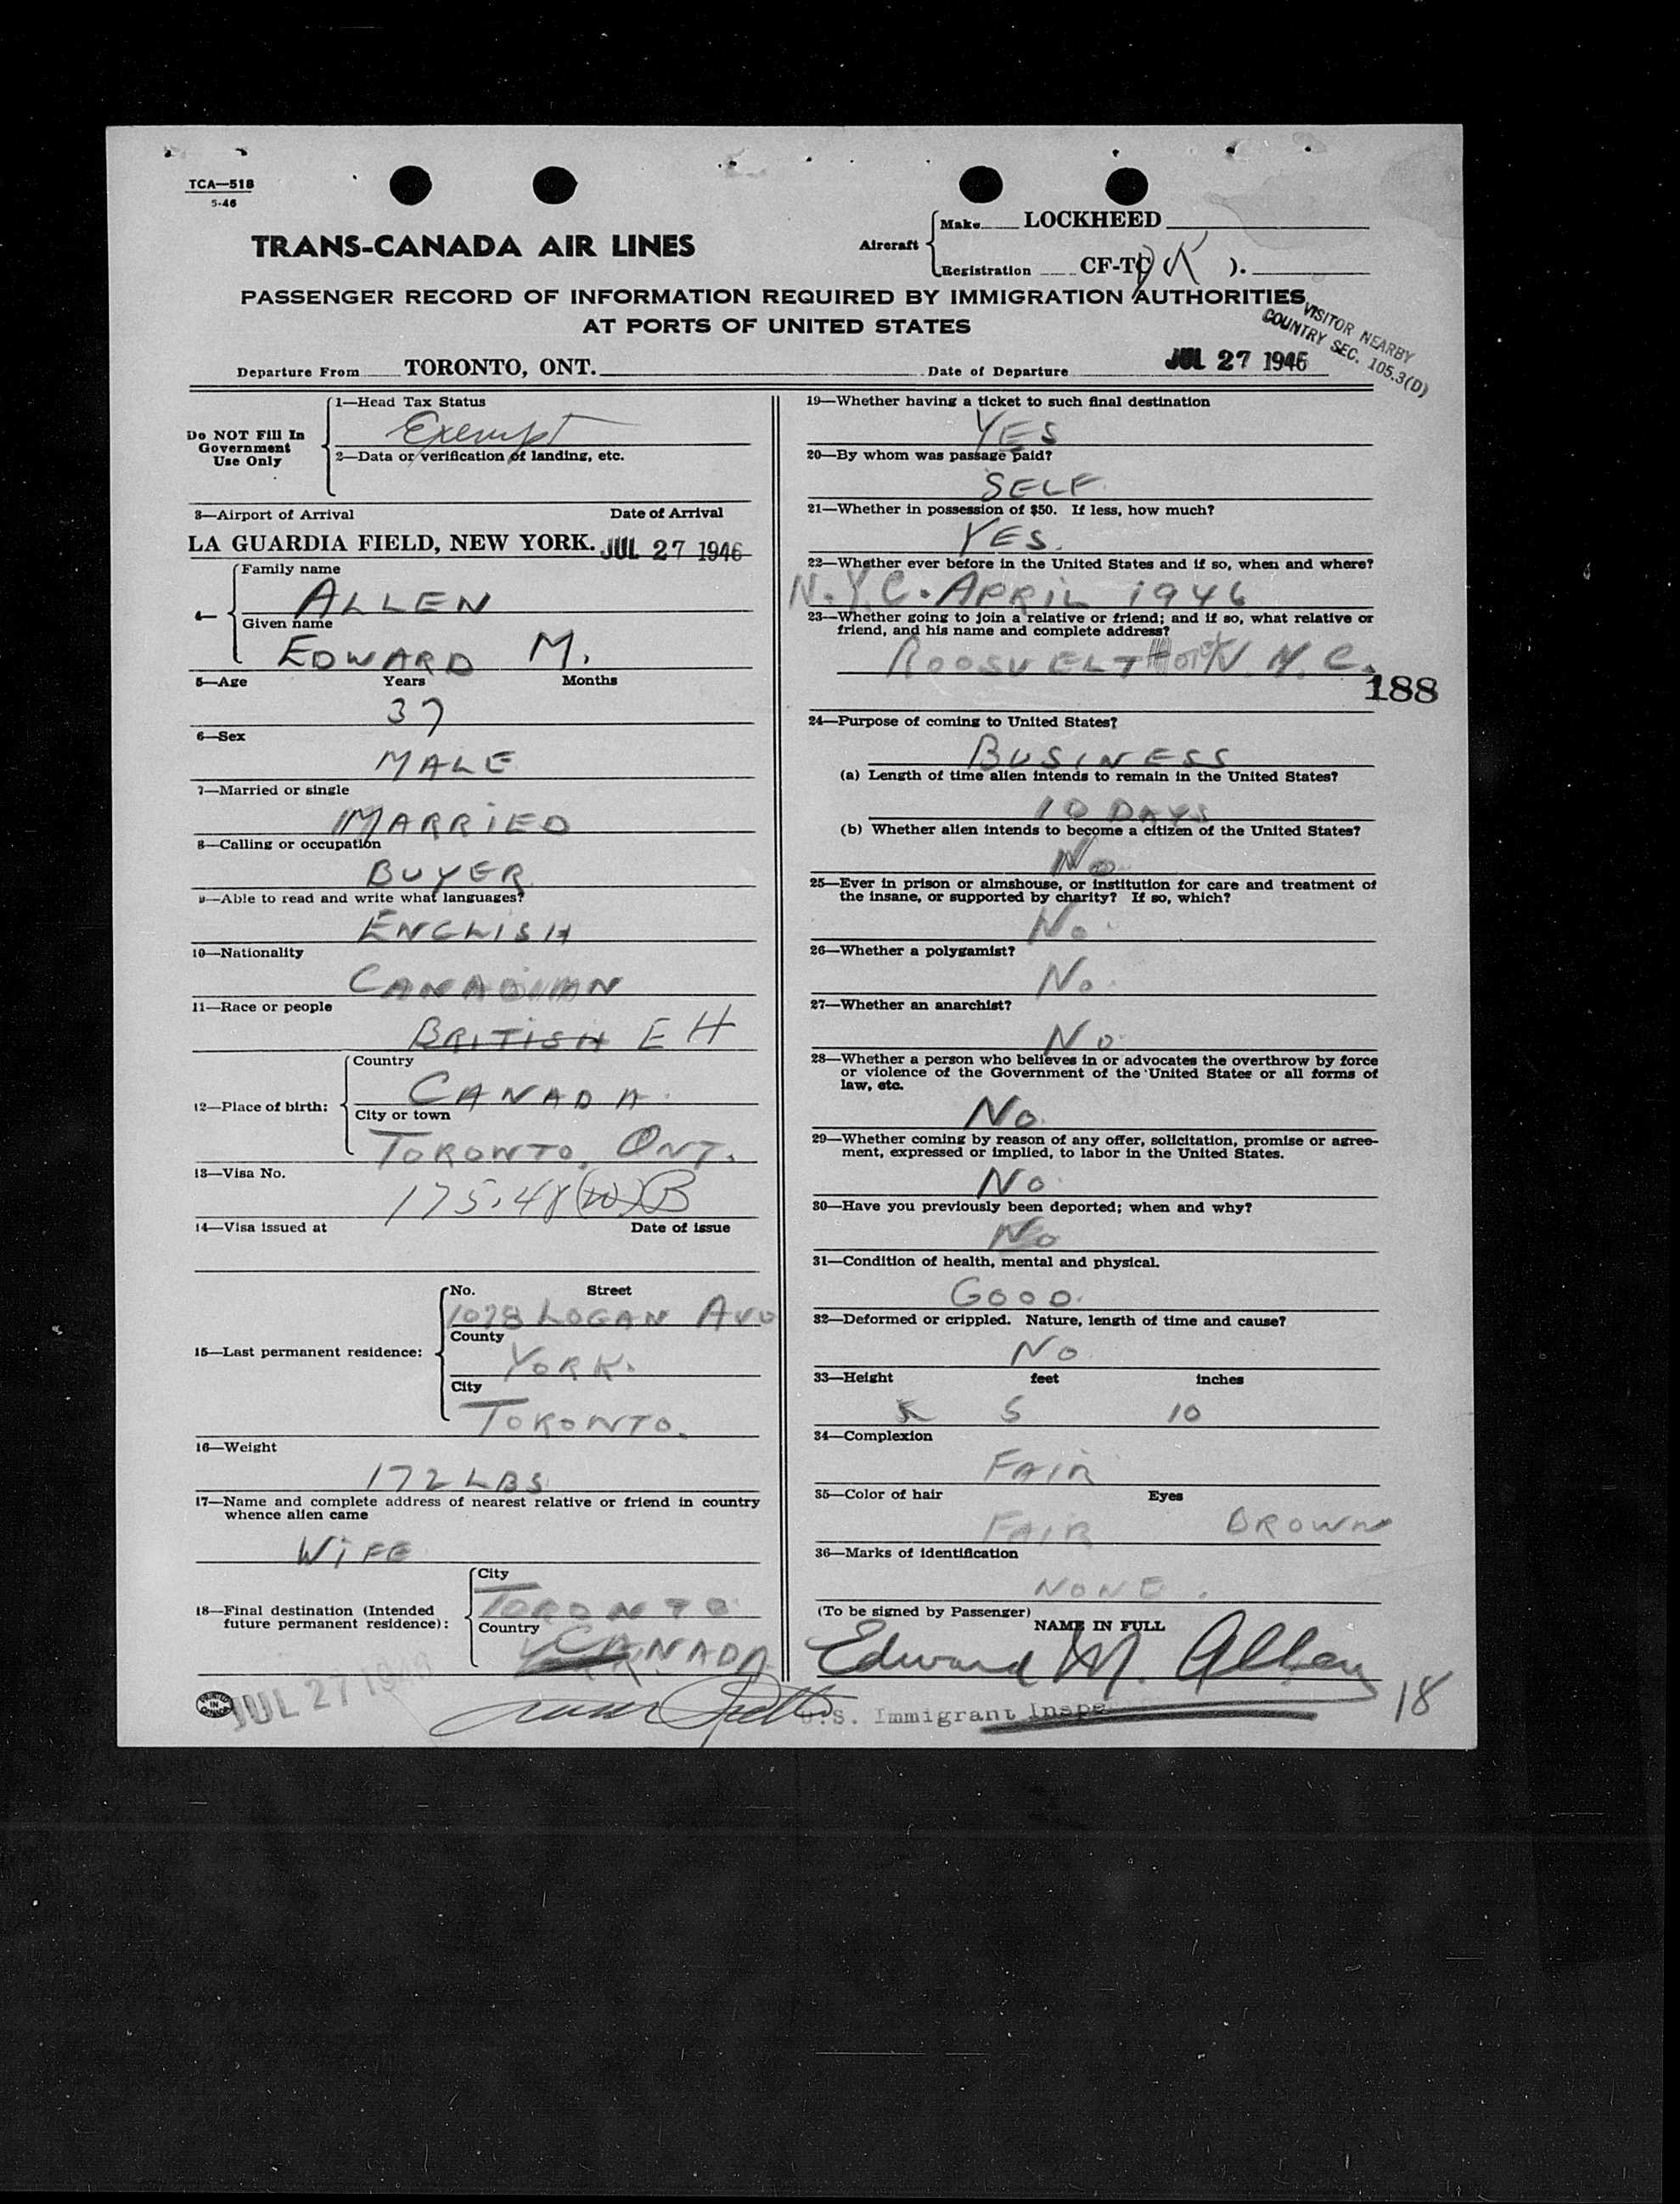 TCA—518
5-46
TRANS-CANADA AIR LINES
Aircraft
Make LOCKHEED
Registration CF-TC ( K ).
PASSENGER RECORD OF INFORMATION REQUIRED BY IMMIGRATION AUTHORITIES
AT PORTS OF UNITED STATES
VISITOR NEARBY
COUNTRY SEC. 105.3(D)
Departure From TORONTO, ONT. Date of Departure JUL 27 1946
Do NOT Fill In
Government
Use Only
1—Head Tax Status
Exempt
2—Data or verification of landing, etc.
3—Airport of Arrival Date of Arrival
LA GUARDIA FIELD, NEW YORK. JUL 27 1946
4—
Family name
ALLEN
Given name
EDWARD M.
5—Age Years Months
37
6—Sex
MALE
7—Married or single
MARRIED
8—Calling or occupation
BUYER
9—Able to read and write what languages?
ENGLISH
10—Nationality
CANADIAN
11—Race or people
BRITISH EH
12—Place of birth:
Country
CANADA
City or town
TORONTO, ONT.
13—Visa No.
175.48 B
14—Visa issued at Date of issue
15—Last permanent residence:
No. Street
1078 LOGAN AVE
County
YORK.
City
TORONTO.
16—Weight
172 LBS
17—Name and complete address of nearest relative or friend in country
whence alien came
WIFE
18—Final destination (Intended
future permanent residence):
City
TORONTO
Country
CANADA
19—Whether having a ticket to such final destination
YES
20—By whom was passage paid?
SELF.
21—Whether in possession of $50. If less, how much?
YES.
22—Whether ever before in the United States and if so, when and where?
N.Y.C. APRIL 1946
23—Whether going to join a relative or friend; and if so, what relative or
friend, and his name and complete address?
ROOSVELT Hotel N.Y.C.
188
24—Purpose of coming to United States?
BUSINESS
(a) Length of time alien intends to remain in the United States?
10 DAYS
(b) Whether alien intends to become a citizen of the United States?
No
25—Ever in prison or almshouse, or institution for care and treatment of
the insane, or supported by charity? If so, which?
No
26—Whether a polygamist?
No.
27—Whether an anarchist?
No.
28—Whether a person who believes in or advocates the overthrow by force
or violence of the Government of the United States or all forms of
law, etc.
No.
29—Whether coming by reason of any offer, solicitation, promise or agree-
ment, expressed or implied, to labor in the United States.
No.
30—Have you previously been deported; when and why?
No
31—Condition of health, mental and physical.
GOOD.
32—Deformed or crippled. Nature, length of time and cause?
No.
33—Height feet inches
5 10
34—Complexion
FAIR
35—Color of hair Eyes
FAIR BROWN
36—Marks of identification
NONE.
(To be signed by Passenger)
NAME IN FULL
Edward M. Allen
PRINTED IN CANADA
JUL 27 1946
U.S. Immigrant Inspe
18